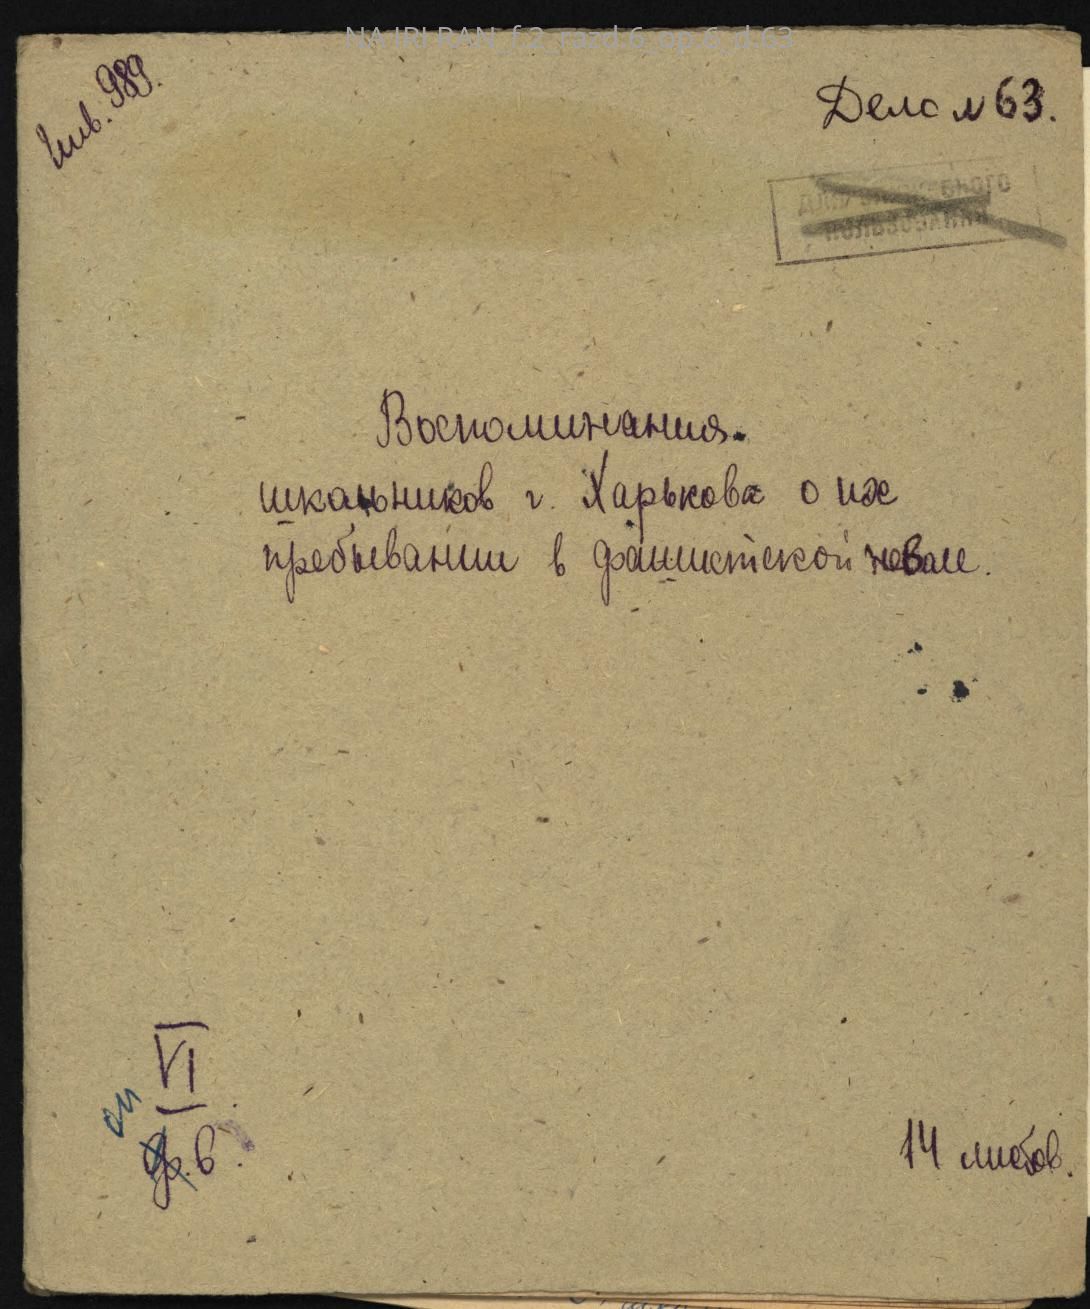 NA IRI RAN_f.2_razd.6_op.6_d.63
Инв. 989.
Дело № 63.
пользования
Воспоминания.
школьников г. Харькова о их
пребывании в фашистской неволе.
VI
оп
ф. 6.
14 листов.